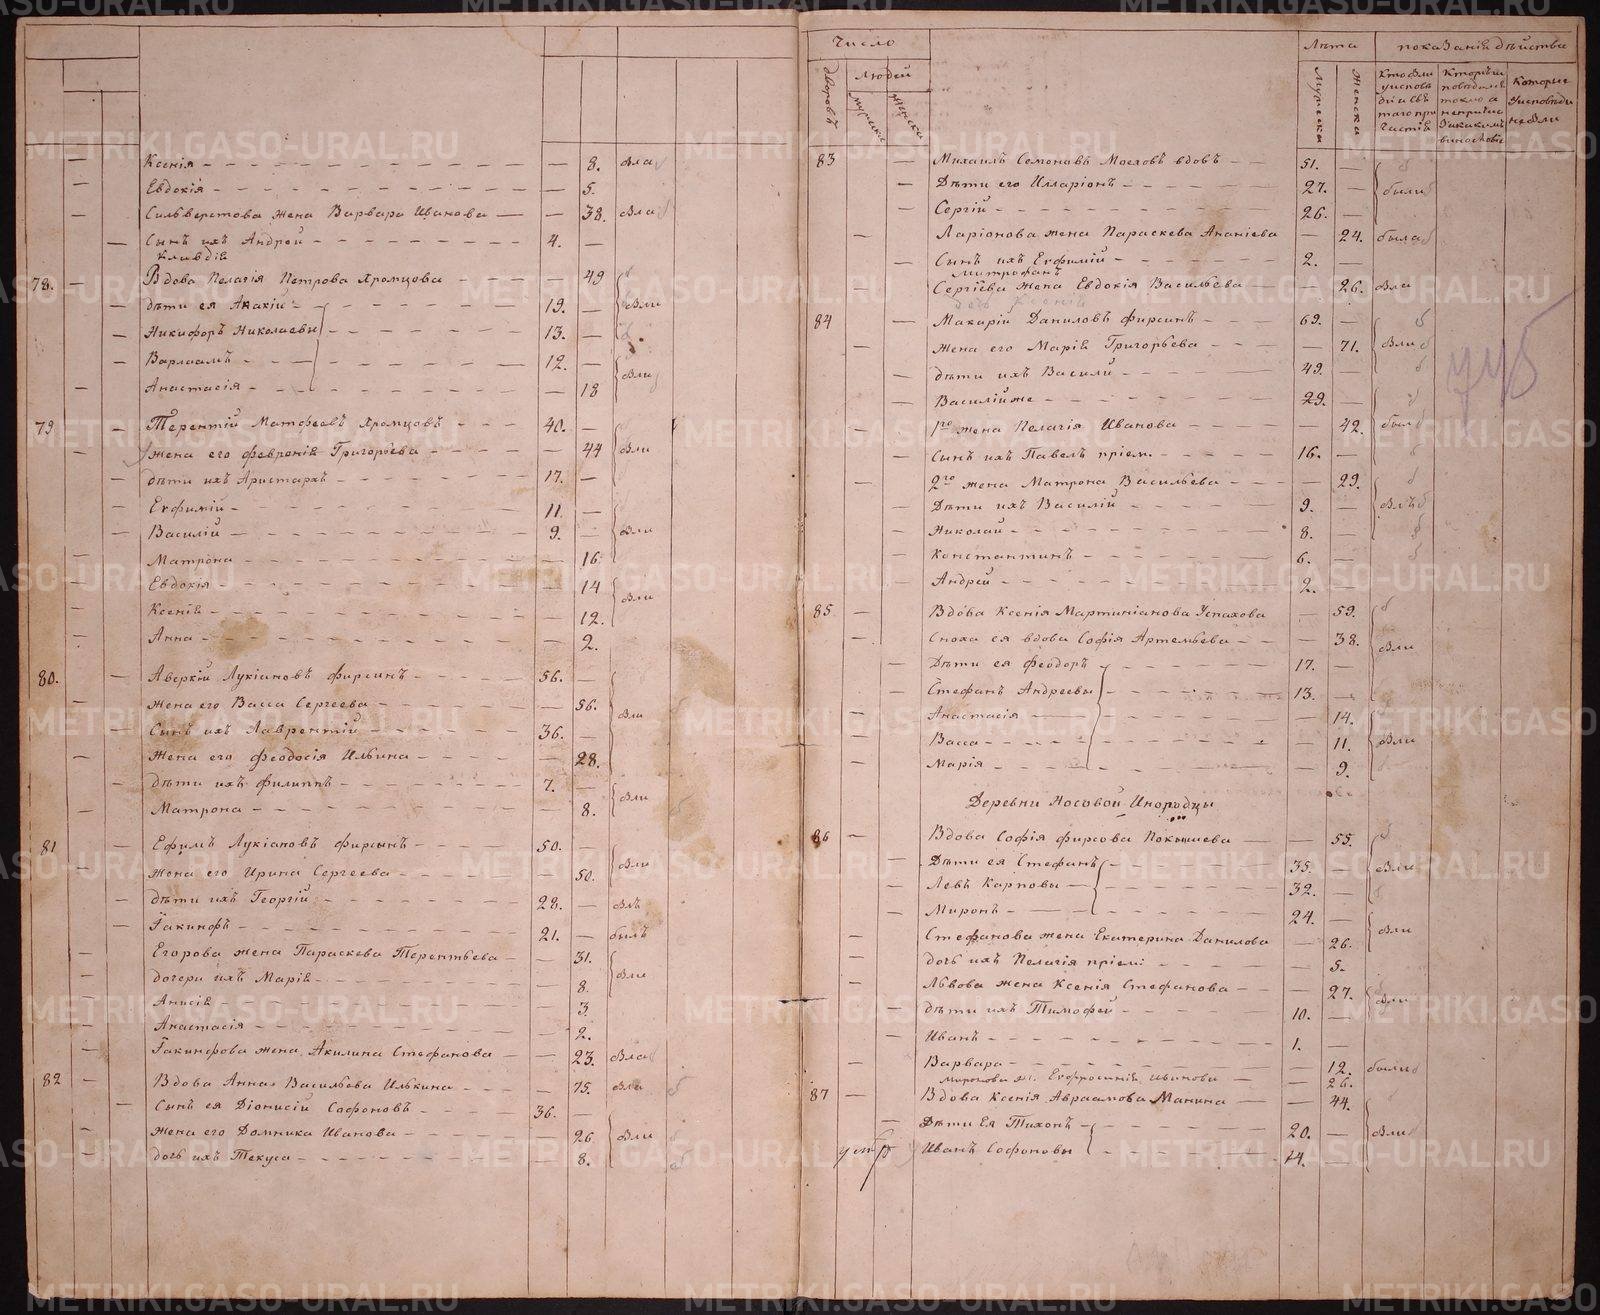 Ксенія 8. бла
Евдокія 5.
Сильверстова жена Варвара Иванова 38. бла
Сынъ ихъ Андрей 4.
Клавдія
78. Вдова Пелагія Петрова Хромцова 49
дѣти ея Акакій 19. бли
Никифоръ Николаевы 13.
Варлаамъ 12. бли
Анастасія 18
79 Терентій Матфеевъ Хромцовъ 40.
жена его Февронія Григорьева 44 бли
дѣти ихъ Аристархъ 17.
Евфимій 11.
Василій 9. бли
Матрона 16
Евдокія 14 бли
Ксенія 12.
Анна 2.
80. Аверкій Лукіановъ Фирсинъ 56.
жена его Васса Сергеева 56. бли
Сынъ ихъ Лаврентій 36.
Жена его Феодосія Ильина 28.
дѣти ихъ Филиппъ 7. бли
Матрона 8.
81 Ефимъ Лукіановъ Фирсынъ 50.
жена его Ирина Сергеева 50. бли
дѣти ихъ Георгій 28. блъ
Іакинфъ 21. былъ
Егорова жена Параскева Терентьева 31.
дочери ихъ Марія 8. бли
Анисія 3.
Анастасія 2.
Іакинфова жена Акилина Стефанова 23. бла
82 Вдова Анна Васильева Илькина 75. бла
Сынъ ея Діонисій Софоновъ 36.
Жена его Домника Иванова 26 бли
дочь ихъ Текуса 8.
Число Лѣта показаніе дѣйства
дворовъ людей мужска женска Мужска Женска
83 Михаилъ Семеновъ Моеховъ вдовъ 51.
Дѣти его Илларіонъ 27. были
Сергій 26.
Ларіонова жена Параскева Ананіева 24. была
Сынъ ихъ Евфимій 2.
Митрофанъ
Сергіева жена Евдокія Васильева 26. бла
84 Макарій Даниловъ Фирсинъ 69.
жена его Марія Григорьева 71. бли
дѣти ихъ Василій 49.
Василій же 29.
1го жена Пелагія Иванова 42. был
Сынъ ихъ Павелъ пріем. 16.
2го жена Матрона Васильева 29.
Дѣти ихъ Василій 9. блъ
Николай 8.
Константинъ 6.
Андрей 2.
85 Вдова Ксенія Мартиніанова Успахова 59.
Сноха ея вдова Софія Артемьева 38. бли
Дѣти ея Феодоръ 17.
Стефанъ Андреевы 13.
Анастасія 14.
Васса 11. бли
Марія 9.
Деревни Носовой Инородцы
86 Вдова Софія Фирсова Покышева 55.
Дѣти ея Стефанъ 35. бли
Левъ Карповы 32.
Миронъ 24.
Стефанова жена Екатерина Данилова 26. бли
дочь ихъ Пелагія пріем: 5.
Львова жена Ксенія Стефанова 27. бли
дѣти ихъ Тимофей 10.
Иванъ 1.
Варвара 12. были
Миронова ж. Евфросинія Иванова 26.
87 Вдова Ксенія Авраамова Манина 44.
Дѣти Ея Тихонъ 20. бли
Иванъ Софоновы 14.
METRIKI.GASO-URAL.RU